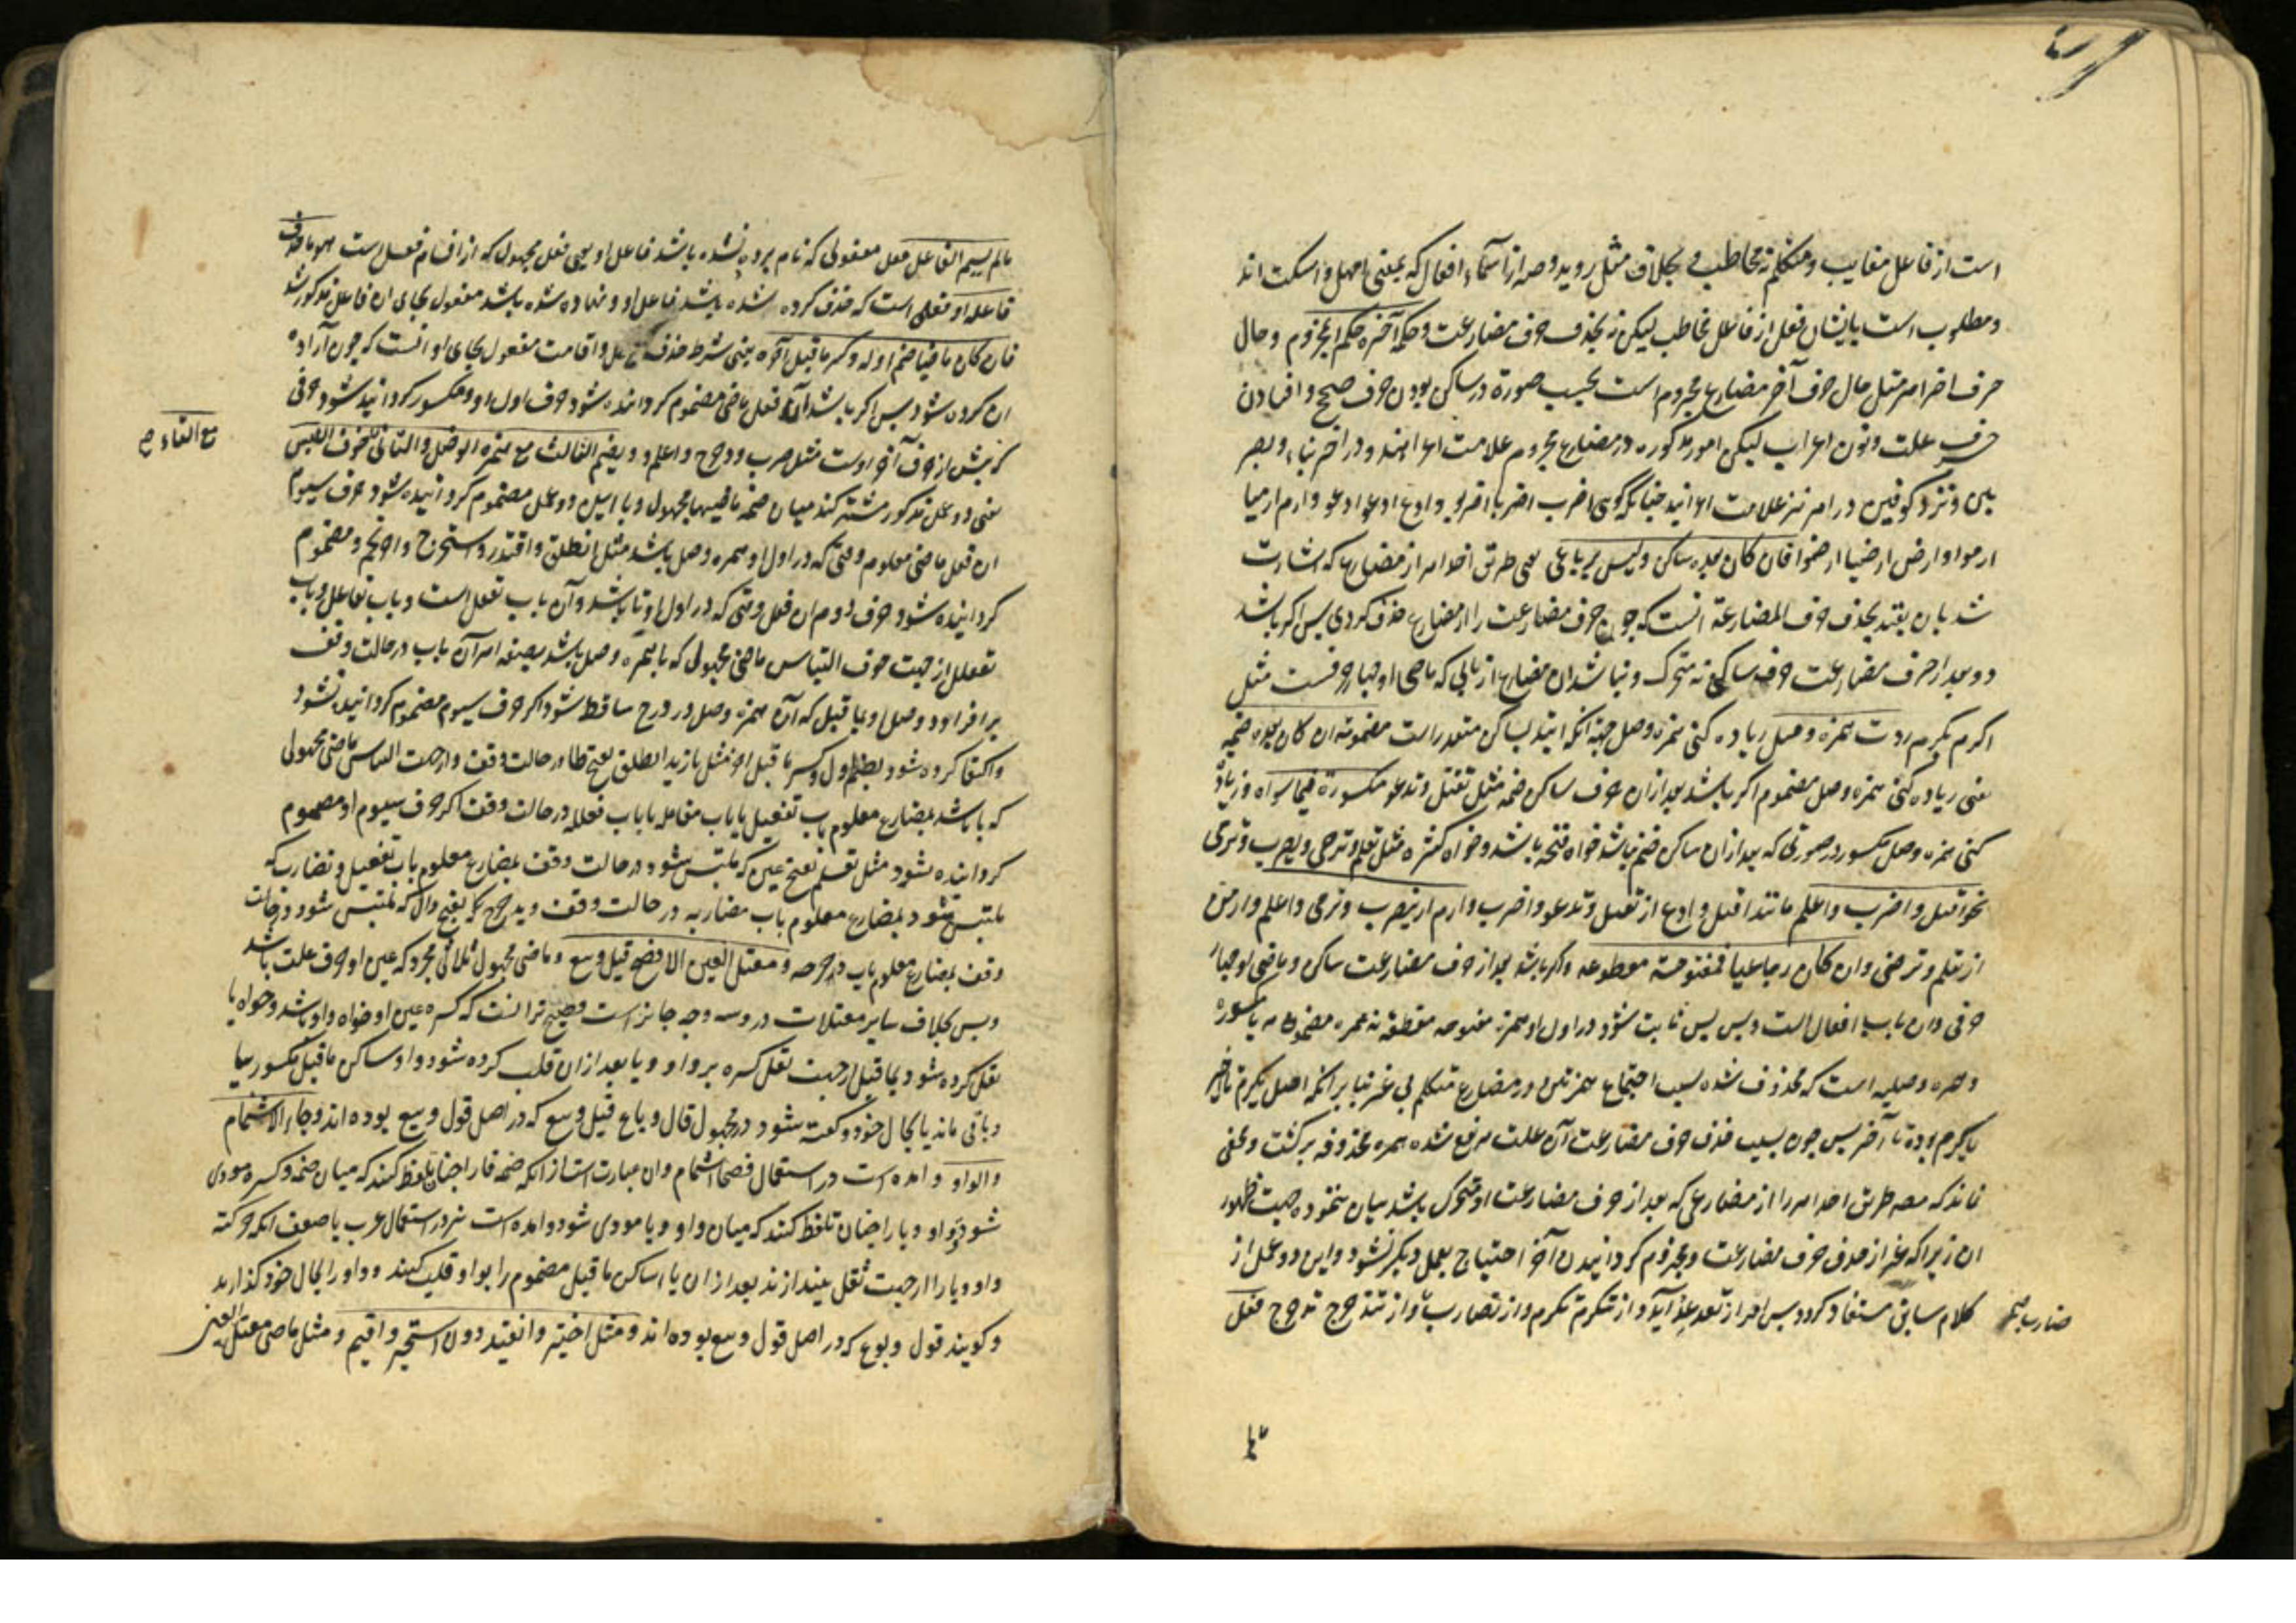 است از فاعل مغایب و متکلم نه مخاطب بخلاف مثل روید و صه از اسماء افعال که بمعنی امهل و اسکت اند
و مطلوب است بایشان فعل از فاعل مخاطب لیکن نه بحذف حرف مضارعت و حکم آخره حکم المجزوم و حال
حرف اخر امر مثل حال حرف آخر مضارع مجزوم است بحسب صورة در ساکن بودن حرف صحیح و افتادن
حرف علت و نون اعراب لیکن امور مذکوره در مضارع مجزوم علامت اعرابند و در امر بناء و بصر
یین و نزد کوفیین در امر نیز علامت اعرابند چنانکه گوئی اضرب اضربا اضربوا و ادع ادعوا ادعوا و ارم ارمیا
ارموا و ارض ارضیا ارضوا فان کان بعده ساکن و لیس برباعی یعنی طریق اخذ امر از مضارع که اشارت
شد بان بقید بحذف حرف المضارعة انست که چون حرف مضارعت را از مضارع حذف کردی پس اکر باشد
دو بعد از حرف مضارعت حرف ساکن نه متحرک و نباشد ان مضارع از بابی که ماضی او چهار حرفست مثل
اکرم یکرم زدت همزه وصل زیاده کنی همزه وصل جهة انکه ابتدا بساکن متعذر است مضمومة ان کان بعده ضمة
یعنی زیاده کنی همزه وصل مضموم اکر باشد بعد از ان حرف ساکن ضمه مثل تقتل و تدعو مکسورة فیما سواه و زیاد
کنی همزه وصل مکسور در صورتی که بعد از ان ساکن ضم نباشد خواه فتحه باشد و خواه کسره مثل تعلم و ترمی و یضرب و تری
نحو اقتل و اضرب و اعلم مانند اقتل و ادع از تقتل و تدعو و اضرب و ارم از تضرب و ترمی و اعلم و ارض
از تعلم و ترضی و ان کان رباعیا فمفتوحة مقطوعه و اکر باشد بعد از حرف مضارعت ساکن و ماضی او چهار
حرفی و ان باب افعال است و بس پس ثابت شود در اول او همزه مفتوحه مقطعه نه همزه مضموم یا مکسوره
و همزه وصلیه است که محذوف شده بسبب اجتماع همزتین در مضارع متکلم بی غیر بنا بر انکه اصل یکرم تا اخر
یاکرم بوده تا آخر پس چون بسبب حذف حرف مضارعت آن علت مرفع شده همزه محذوفه برکشت و مخفی
نماند که مصه طریق اخذ امر را از مضارعی که بعد از حرف مضارعت او متحرک باشد بیان ننموده جهت ظهور
ان زیرا که غیر از حذف حرف مضارعت و مجزوم کردانیدن آخر احتیاج بعمل دیکر نشود و این دو عمل از
کلام سابق مستفاد کردد پس امر از تعد عد آید و از تتکرم تکرم و از تضارب و از تتدحرج تدحرج فعل
ضارب صح
مالم یسم الفاعل فعل مفعولی که نام برده نشده باشد فاعل او یعنی فعل مجهول که از اقسام فعل است هو ما حذف
فاعله او فعلی است که حذف کرده شده باشد فاعل او و نهاده شده باشد مفعول بجای ان فاعل مذکور شد
فان کان ماضیا ضم اوله و کسر ما قبل آخره یعنی شرط حذف فاعل و اقامت مفعول بجای او انست که چون آراده
ان کرده شود پس اکر باشد آن فعل ماضی مضموم کردانده شود حرف اول او و مکسور کردانیده شود حرفی
که پیش از حرف آخر اوست مثل ضرب و دحرج و اعلم و یضم الثالث مع همزة الوصل و الثانی خوف اللبس
مع التاء صح
یعنی دو عمل مذکور مشتبه کند میان صیغه ماضیها مجهول و با این دو عمل مضموم کردانیده شود حرف سیوم
ان فعل ماضی معلوم وقتی که در اول او همزه وصل باشد مثل انطلق و اقتدر و استخرج و احرنجم و مضموم
کردانیده شود حرف دوم ان فعل وقتی که در اول او تا باشد و آن باب تفعل است و باب تفاعل و باب
تفعلل از جهت خوف التباس ماضی مجهول که با همزه وصل باشد بصیغه امر آن باب در حالت وقف
و اکتفا کرده شود بضم اول و کسر ما قبل اخر مثل یازید انطلق بفتح طا در حالت وقف و از جهت التباس ماضی مجهولی
که با تا باشد بمضارع معلوم باب تفعیل یا باب مفاعله یا باب فعلله در حالت وقف اکر حرف سیوم او مضموم
کردانده نشود مثل تعلم بفتح عین که ملتبس شود در حالت وقف بمضارع معلوم باب تفعیل و تضارب که
ملتبس شود بمضارع معلوم باب مضاربه در حالت وقف و تدحرج بفتح دال که ملتبس شود در حالت
وقف بمضارع معلوم باب دحرجه و معتل العین الافصح قیل و بیع و ماضی مجهول ثلاثی مجرد که عین او حرف علت باشد
و بس بخلاف سایر معتلات در و سه وجه جایز است فصیح تر انست که کسره عین او خواه واو باشد و خواه یا
نقل کرده شود بما قبل از جهت ثقل کسره بر واو و یا بعد از ان قلب کرده شود واو ساکن ما قبل مکسور بیا
و باقی ماند یا بحال خود و کفته شود در مجهول قال و باع قیل و بیع که در اصل قول و بیع بوده اند و جاء الاشمام
و الواو و امده است در استعمال فصحا اشمام و ان عبارت است از انکه ضمه فا را چنان تلفظ کنند که میان ضمه و کسره مودی
شود و واو و یا را چنان تلفظ کنند که میان واو و یا مودی شود و امده است نیز در استعمال عرب با ضعف انکه حرکت
واو و یا را از جهت ثقل بیندازند بعد از ان یا ساکن ما قبل مضموم را بواو قلب کنند و واو را بحال خود کذارند
و کویند قول و بوع که در اصل قول و بیع بوده اند و مثل اختیر و انقید دون استخیر و اقیم و مثل ماضی معتل العین